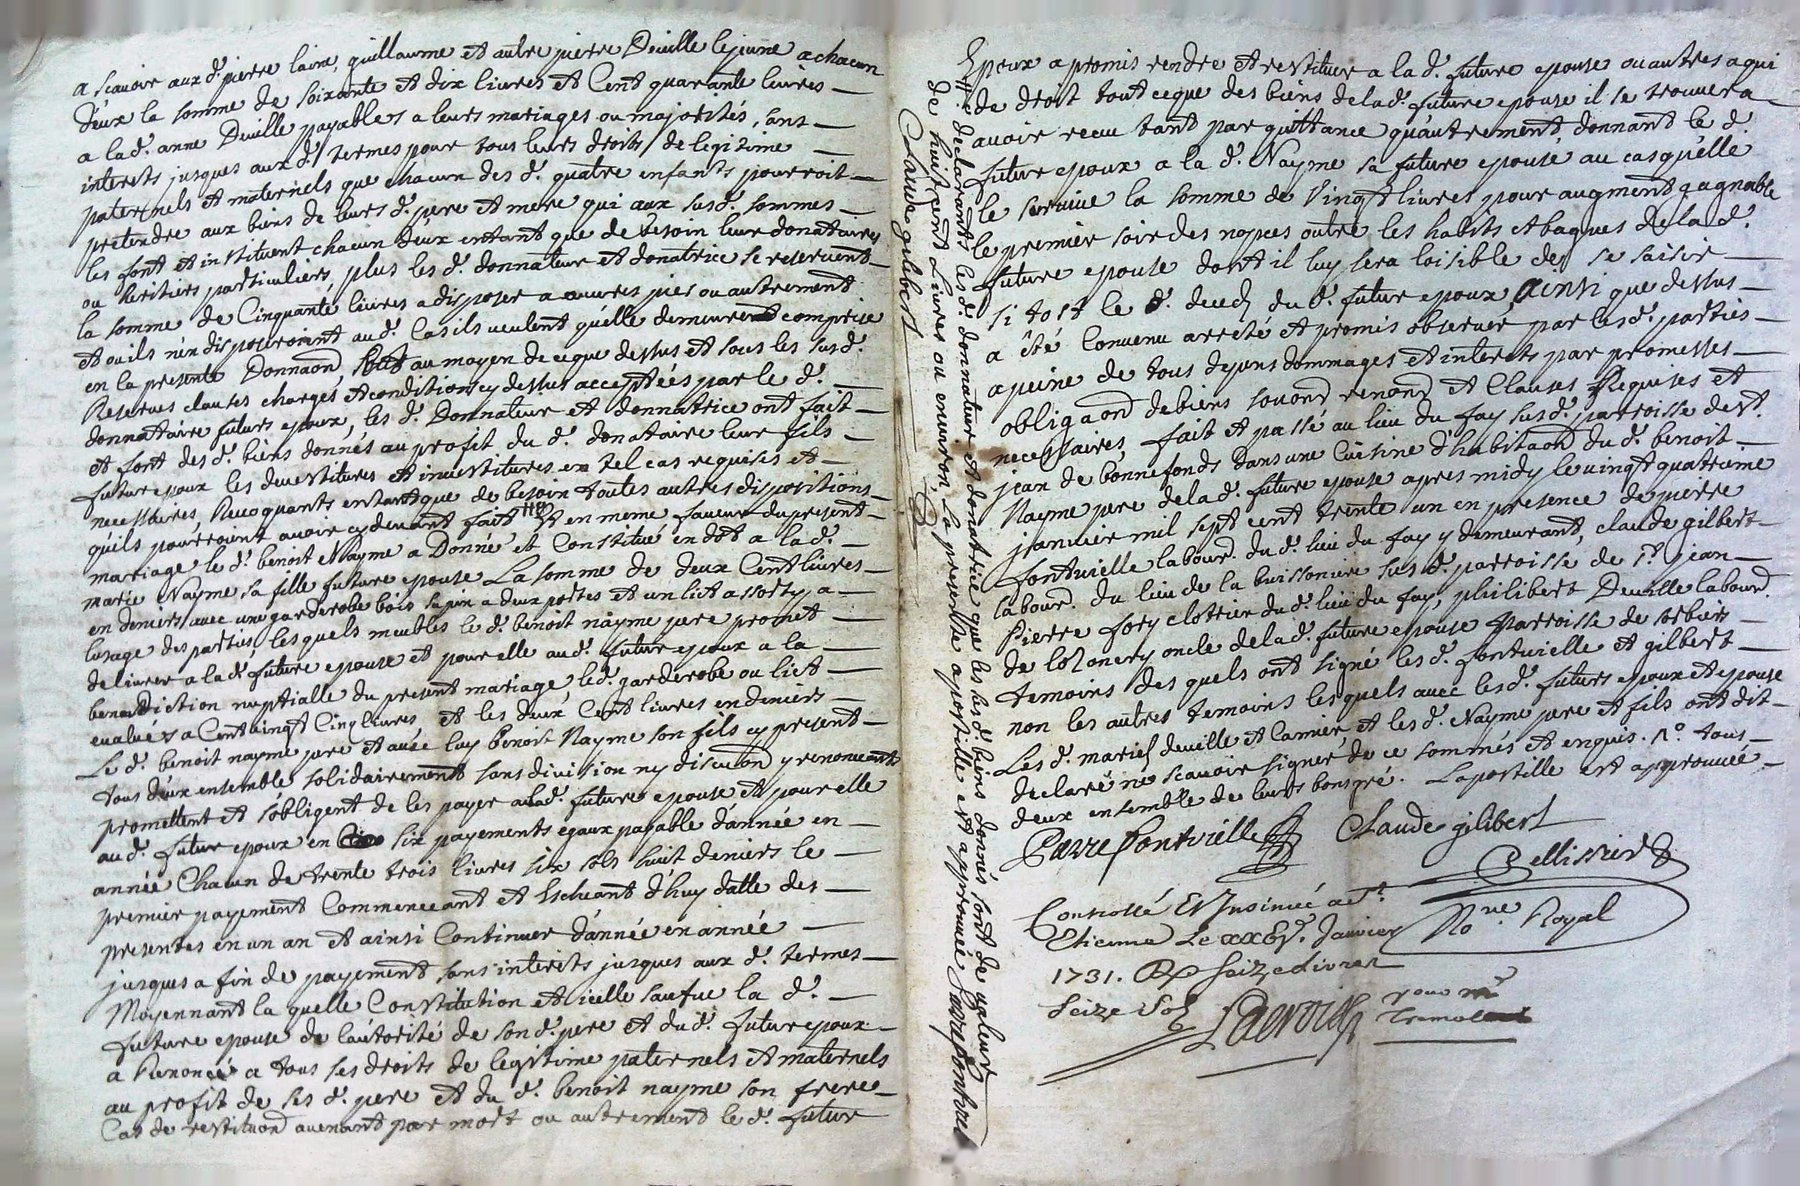 a scavoir aux d. pierre laine, guillaume et autre pierre Deville lejeune a chacun
d'eux la somme de soixante et dix livres et Cent quarante livres
a lad. anne Deville payables a leurs mariages ou majorités, sans
interets jusques aux d. termes pour tous leurs droits de legitime
paternels et maternels que chacun des d. quatre enfants pourroit
pretendre aux biens de leurs d. pere et mere qui aux susd. sommes
les font et instituent chacun d'eux entant que de besoin leur donataires
ou heritiers particuliers, plus les d. donnateur et donatrice se reservent
la somme de Cinquante livres a disposer a œuvres pies ou autrement
et ou ils n'en disposeroient aud. Cas ils veulent qu'elle demeure comprise
en la presente Donnaon, tout au moyen de ce que dessus et sous les susd.
Reserves clauses charges et conditions cy dessus acceptées par le d.
donnataire futur epoux, les d. Donnateur et donnatrice ont fait
et font des d. biens donnés au profit du d. donataire leur fils
futur epoux les devestitures et investitures en tel cas requises et
necessaires, Revoquants entant que de besoin toutes autres dispositions
qu'ils pourroient avoir cy devant fait // Et en meme faveur du present
mariage le d. benoit Nayme a Donné et Constitué en dot a la d.
marie Nayme sa fille future epouse La somme de deux Cent livres
en deniers avec une garderobe bois sapin a deux portes et un lit assorty a
lusage des parties, lesquels meubles le d. benoit nayme pere promet
delivrer a la d. future epouse et pour elle au d. futur epoux a la
benediction nuptialle du present mariage, led. garderobe ou lict
evalués a Cent vingt Cinq livres et les deux Cent livres en deniers
Le d. benoit nayme pere et avec luy benoit Nayme son fils cy present
tous deux ensemble solidairement sans division ny discution y renonceants
promettent et s'obligent de les payer a lad. future epouse et pour elle
au d. futur epoux en six payements egaux payable d'année en
année Chacun de trente trois livres six sols huit deniers le
premier payement Commenceant et Escheant d'huy datte des
presentes en un an et ainsi Continuer d'année en année
jusques a fin de payement sans interets jusques aux d. termes
Moyennant la quelle Constitution et icelle sauf la d.
future epouse de l'autorité de son d. pere et du d. futur epoux
a Renoncé a tous ses droits de legitime paternels et maternels
au profit de ses d. pere et du d. benoit nayme son frere
Cas de restituon avenant par mort ou autrement le d. futur
// declarants les d. donnateur et donatrice que les susd. biens donnés sont de valeur
de huit cent Livres ou environ, la presente apostille est approuvée
Claude gilibert
Epoux a promis rendre et restituer a la d. future epouse ou autres a qui
de droit tout ce que des biens de la d. future epouse il se trouvera
avoir receu tant par quittance qu'autrement, donnant le d.
futur epoux a la d. Nayme sa future epouse au cas qu'elle
le survive la somme de Vingt livres pour augment gagnable
le premier soir des nopces outre les habits et bagues de la d.
future epouse dont il luy sera loisible de se saisir
si tost le d. deces du d. futur epoux Ainsi que dessus
a été Convenu arreté et promis observer par les d. parties
a peine de tous depens dommages et interets par promesses
obligaon de biens renon et Clauses Requises et
necessaires, fait et passé au lieu du fay susd. parroisse de st.
jean de bonnefonds Dans une Cuisine d'habitaon du d. benoit
Nayme pere de la d. future epouse apres midy le vingt quatrieme
janvier mil sept cent trente un en presence de pierre
fontvielle labour. du d. lieu du fay y demeurant, claude gilbert
labour. du lieu de la buissoniere susd. parroisse de st. jean
Pierre fory clotrier du d. lieu du fay, philibert Deville labour.
de oncle de la d. future epouse Parroisse de sorbiers
temoins des quels ont signé les d. fontvielle et gilbert
non les autres temoins lesquels avec les d. futurs epoux et epouse
Les d. mariés deville et et les d. Nayme pere et fils ont dit
declaré ne scavoir signer de ce sommés et enquis. n°. tous
deux ensemble de leurs bon gré. Lapostille est approuvée
Pierre fontvielle Claude gilibert
Pellissier
No.re Royal
Controllé Et Insinué a st.
Etienne Le Janvier
1731. Seize Livres
Seize Sols Lacroix